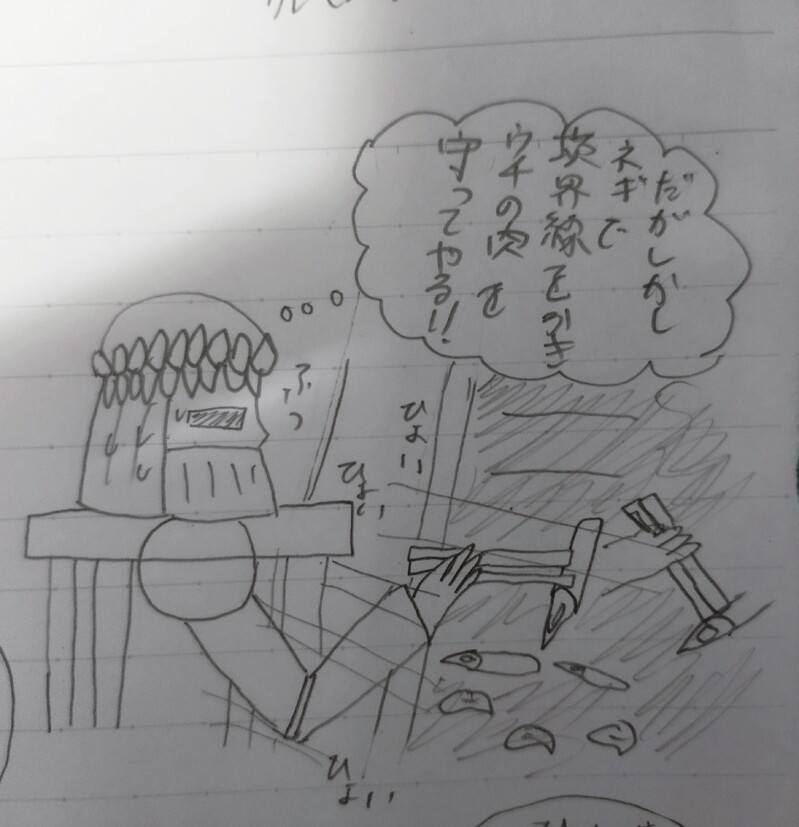 だがしかし
ネギで
境界線を引き
ウチの肉を
守ってやる!!
ふっ
ひょい
ひょい
ひょい